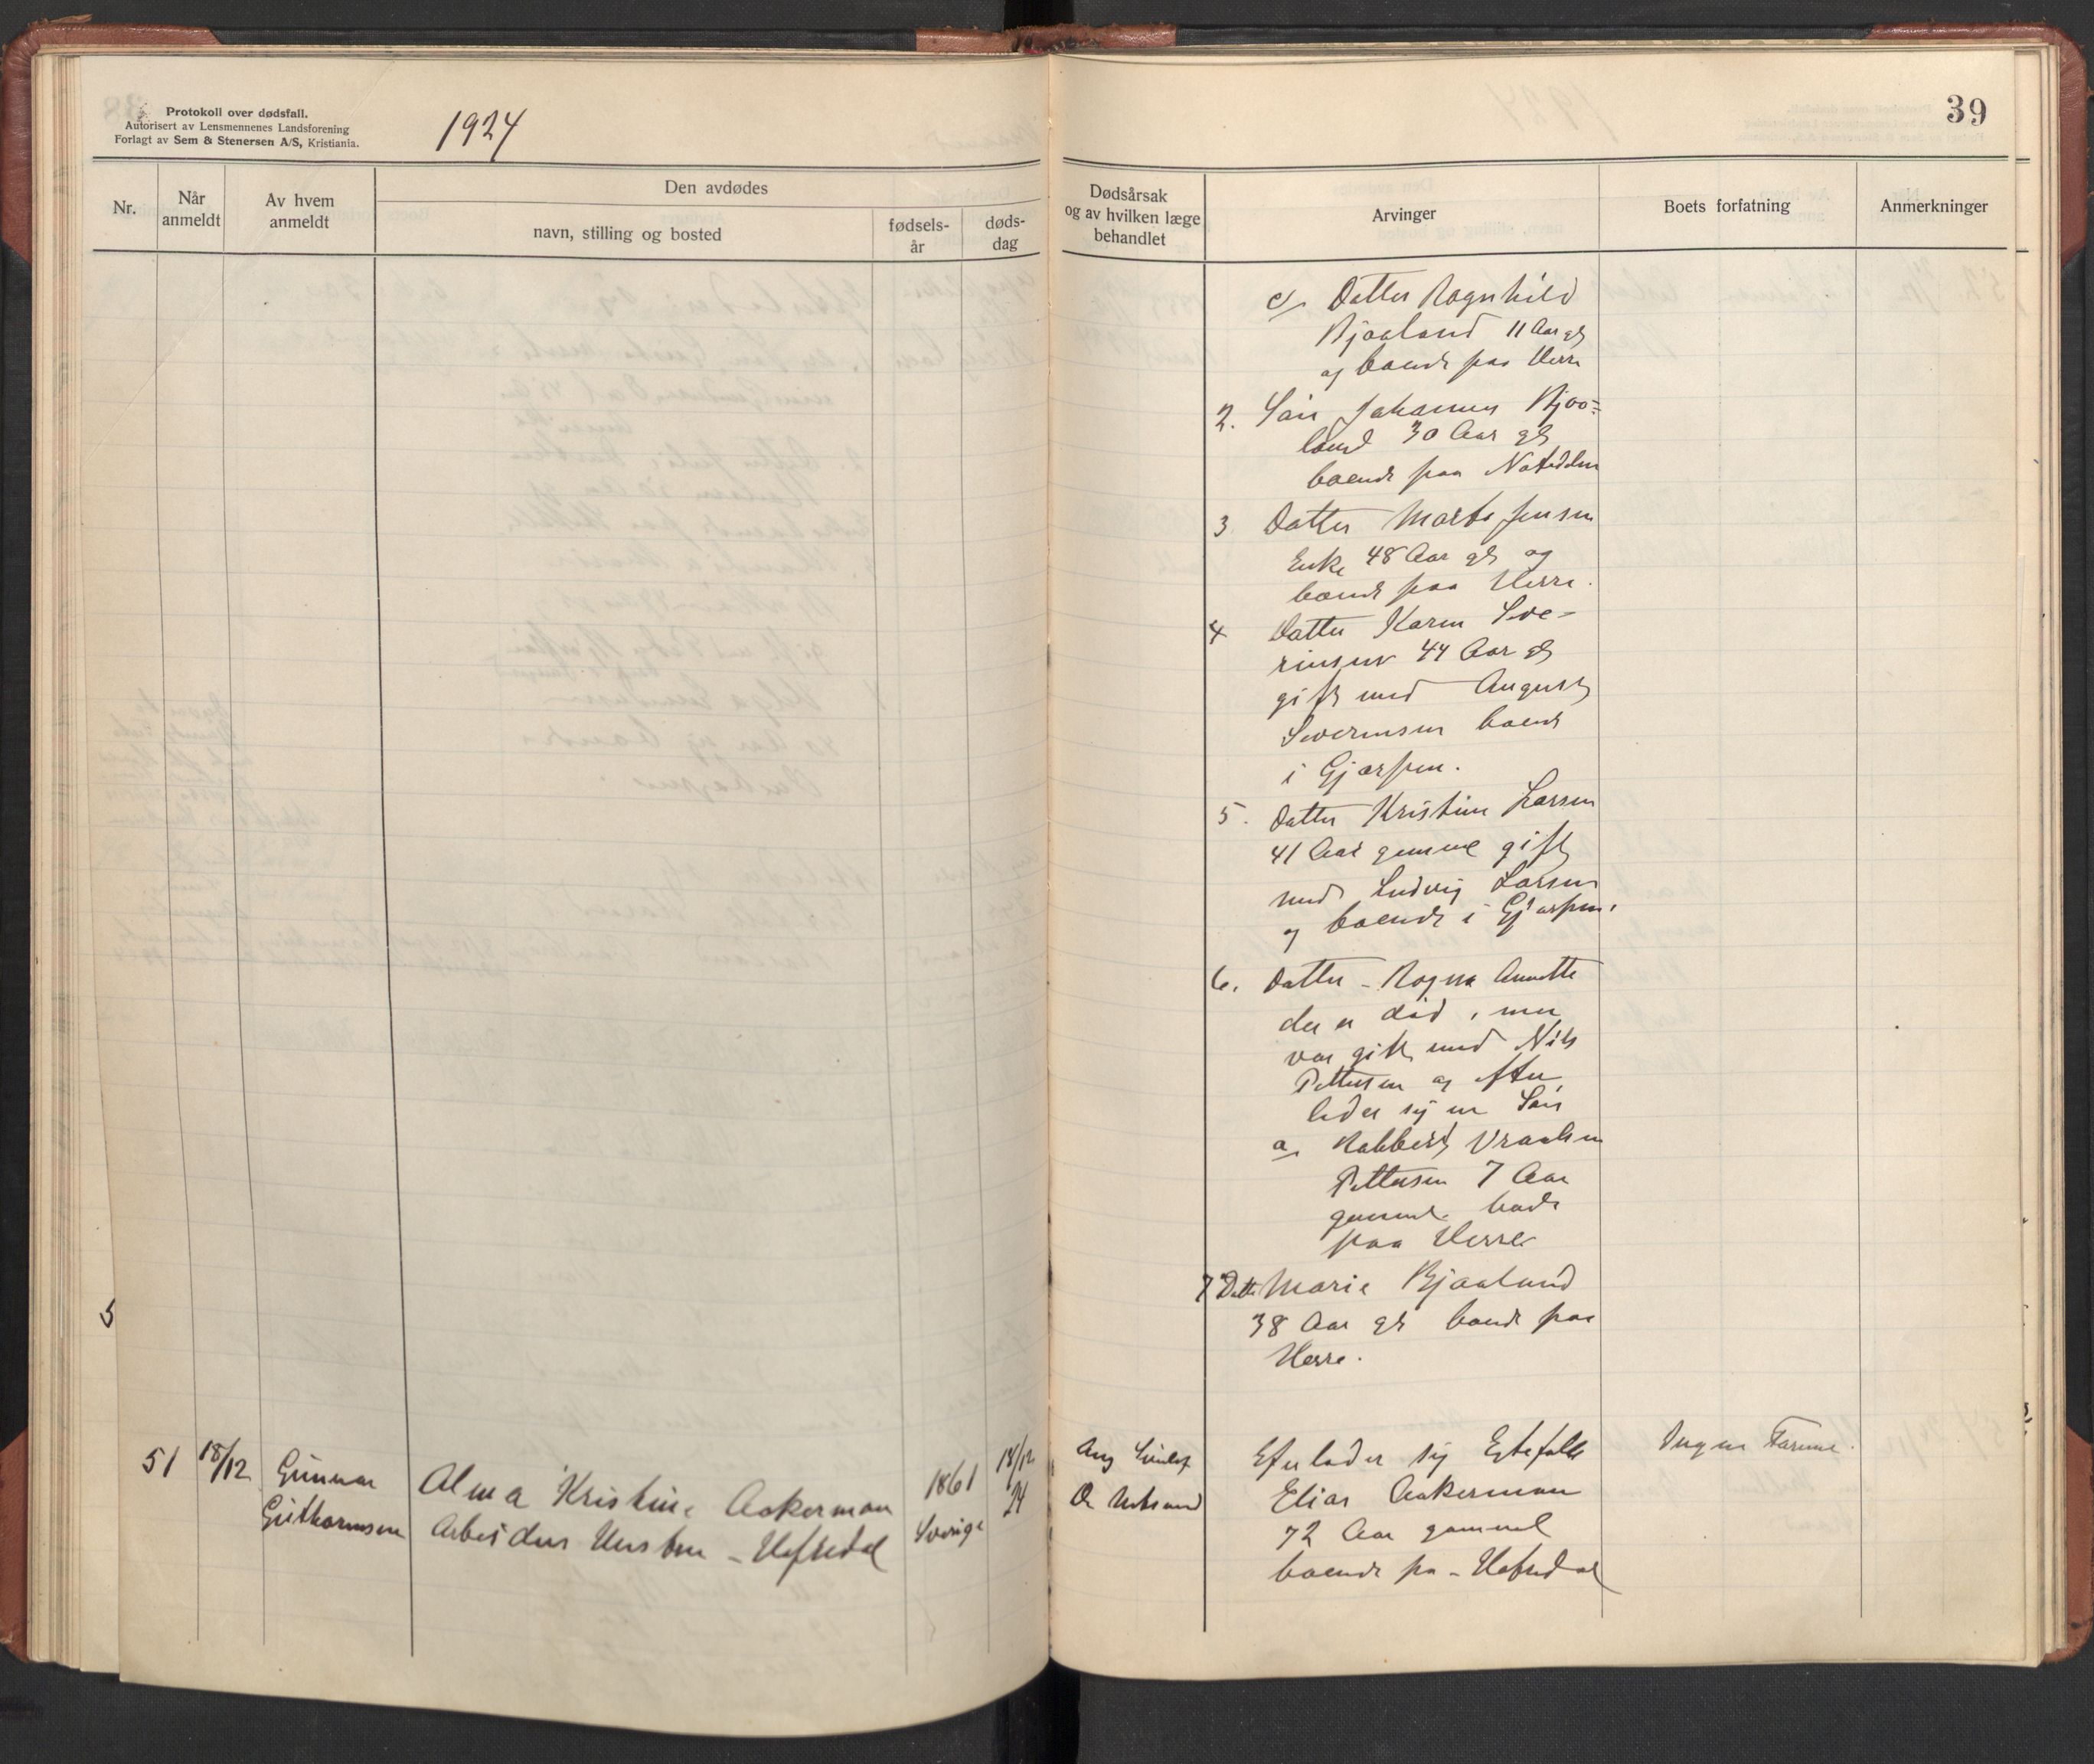 Protokoll over dødsfall.
Autorisert av Lensmennenes Landsforening
Forlagt av Sem & Stenersen A/S, Kristiania.
1924
39
Nr.
Når anmeldt
Av hvem anmeldt
Den avdødes
navn, stilling og bosted
fødsels-år
døds-dag
Dødsårsak og av hvilken læge behandlet
Arvinger
Boets forfatning
Anmerkninger
c, Datter Ragnhild
Bjaaland 11 Aar gl
og boende paa Herre
2. Søn Johannes Bjaa=
land 30 Aar gl
boende paa Notodden
3 Datter Marte Jensen
Enke 48 Aar gl og
boende paa Herre.
4 Datter Karen Seve-
rinsen 44 Aar gl
gift med August
Severinsen boende
i Gjerpen.
5. Datter Kristine Larsen
41 Aar gammel gift
med Ludvig Larsen
og boende i Gjerpen.
6. Datter - Ragna Annette
der er død, men
var gift med Nils
Pettersen og efter
lader sig en Søn
a, Robbert
Pettersen 7 Aar
gammel boende
paa Herre
7 Datter Marie Bjaaland
38 Aar gl boende paa
Herre.
51 18/12 Gunnar Alma Kristine Aakerman 1861 14/12
Guthormsen Arbeiders Hustru - Hafredal Sverige 24
Dr
Efterlader sig Egtefælle
Elias Aakerman
72 Aar gammel
boende pa - Hafredal
Ingen Formue.